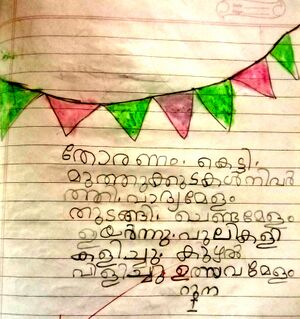 തോരണം. കെട്ടി.
മുത്തുക്കുടകൾനിവർ
ത്തി.വാദ്യമേളം
തുടങ്ങി. ചെണ്ടമേളം
ഉയർന്നു.പുലികളി
കളിച്ചു. കുഴൽ
വിളിച്ചു.ഉത്സവമേളം